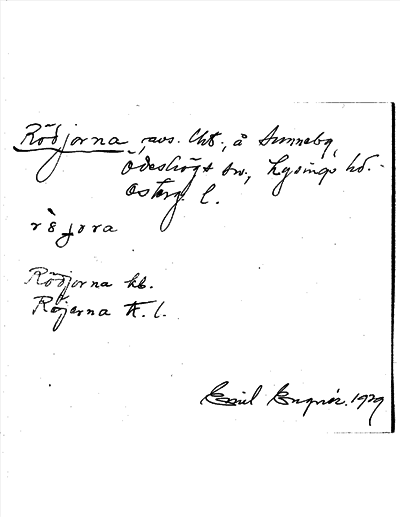 Rödjorna, avs. lht., å Sunneby,
Ödeshögs sn., Lysings hd.
Österg. l.
rö̀jora
Rödjorna kb.
Röjerna tk. l.
Emil Engqvist. 1929